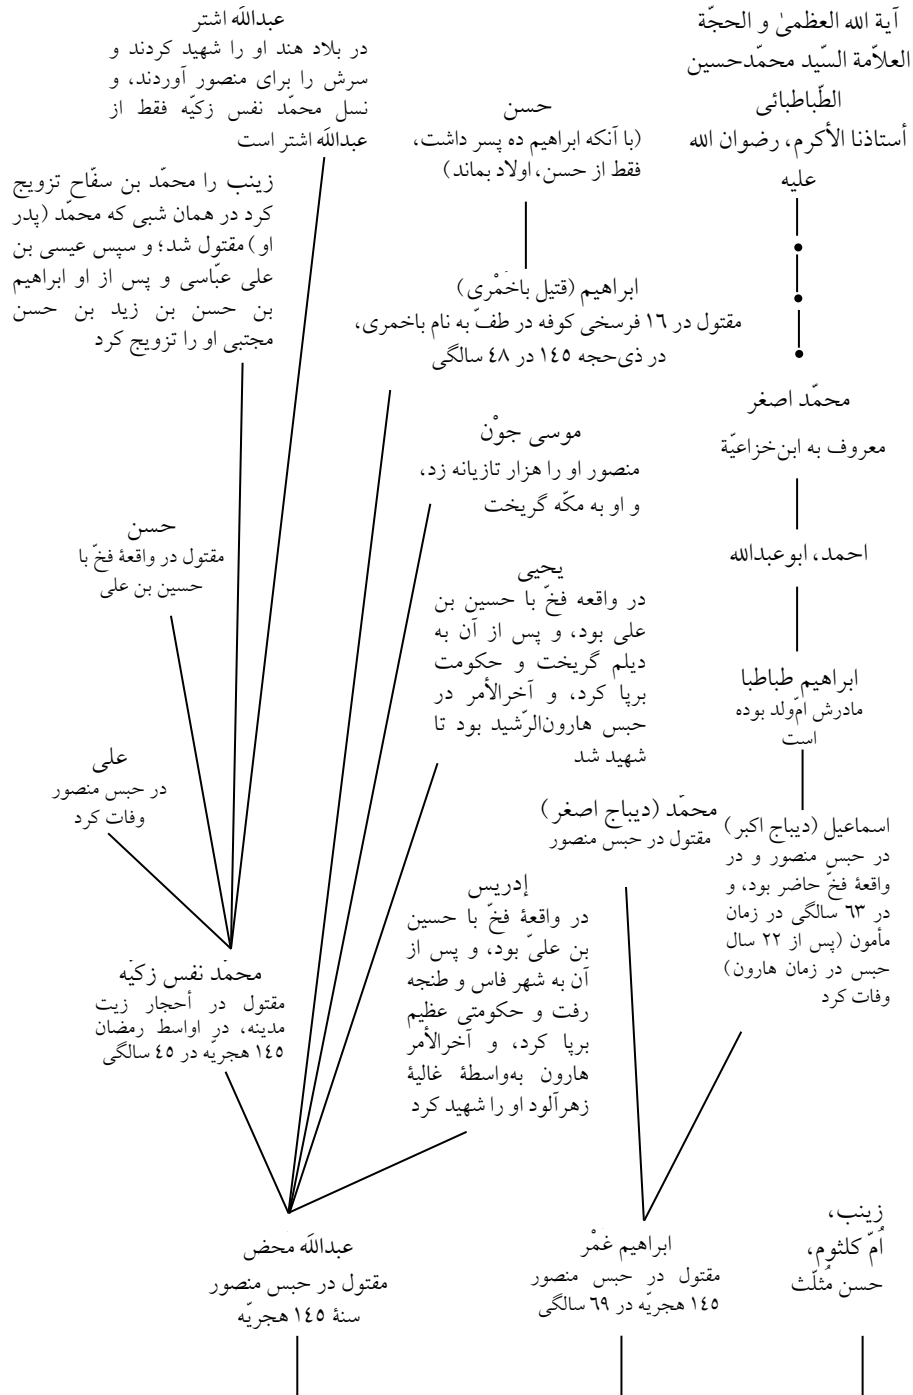 آیة الله العظمیٰ و الحجّة
العلاّمة السّید محمّدحسین
الطّباطبائی
أستاذنا الأکرم، رضوان الله
علیه
محمّد اصغر
معروف به ابن‌خزاعیّة
احمد، ابوعبدالله
ابراهیم طباطبا
مادرش امّ‌ولد بوده
است
اسماعیل (دیباج اکبر)
در حبس منصور و در
واقعهٔ فخّ حاضر بود، و
در ٦٣ سالگی در زمان
مأمون (پس از ٢٢ سال
حبس در زمان هارون)
وفات کرد
حسن
(با آنکه ابراهیم ده پسر داشت،
فقط از حسن، اولاد بماند)
ابراهیم (قتیل باخَمْری)
مقتول در ١٦ فرسخی کوفه در طفّ به نام باخمری،
در ذی‌حجه ١٤٥ در ٤٨ سالگی
موسی جوْن
منصور او را هزار تازیانه زد،
و او به مکّه گریخت
یحیی
در واقعه فخّ با حسین بن
علی بود، و پس از آن به
دیلم گریخت و حکومت
برپا کرد، و آخرالأمر در
حبس هارون‌الرّشید بود تا
شهید شد
محمّد (دیباج اصغر)
مقتول در حبس منصور
إدریس
در واقعهٔ فخّ با حسین
بن علیّ بود، و پس از
آن به شهر فاس و طنجه
رفت و حکومتی عظیم
برپا کرد، و آخرالأمر
هارون به‌واسطهٔ غالیهٔ
زهرآلود او را شهید کرد
عبداللَه اشتر
در بلاد هند او را شهید کردند و
سرش را برای منصور آوردند، و
نسل محمّد نفس زکیّه فقط از
عبداللَه اشتر است
زینب را محمّد بن سفّاح تزویج
کرد در همان شبی که محمّد (پدر
او) مقتول شد؛ و سپس عیسی بن
علی عبّاسی و پس از او ابراهیم
بن حسن بن زید بن حسن
مجتبی او را تزویج کرد
حسن
مقتول در واقعهٔ فخّ با
حسین بن علی
علی
در حبس منصور
وفات کرد
محمّد نفس زکیّه
مقتول در أحجار زیت
مدینه، در اواسط رمضان
١٤٥ هجریّه در ٤٥ سالگی
زینب،
اُمّ کلثوم،
حسن مُثلّث
ابراهیم غَمْر
مقتول در حبس منصور
١٤٥ هجریّه در ٦٩ سالگی
عبداللَه محض
مقتول در حبس منصور
سنهٔ ١٤٥ هجریّه